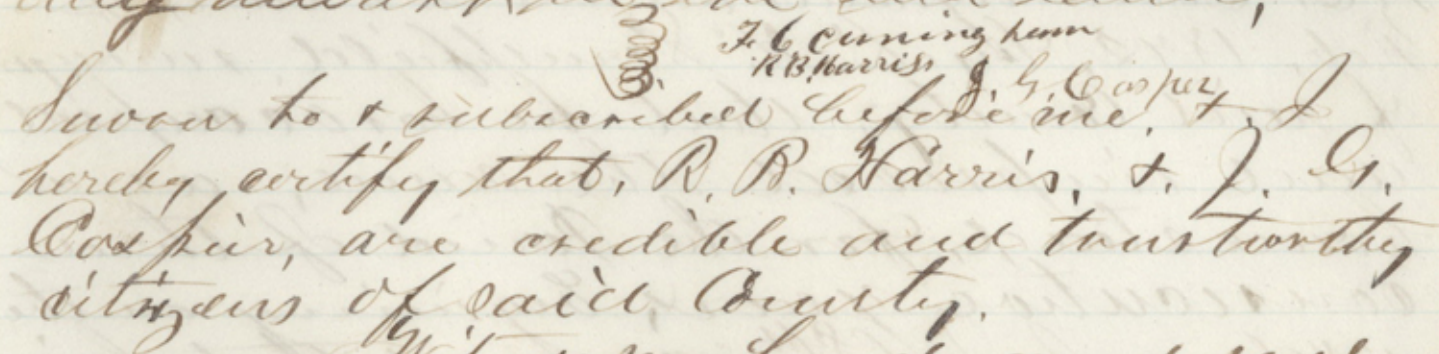 F C cuningham
R B. Harriss
J. G. Cosper
Sworn to & subscribed before me, &. I
hereby certify that, R. B. Harris, &. J. G.
Cospur, are credible and trustworthy
citizens of said County.